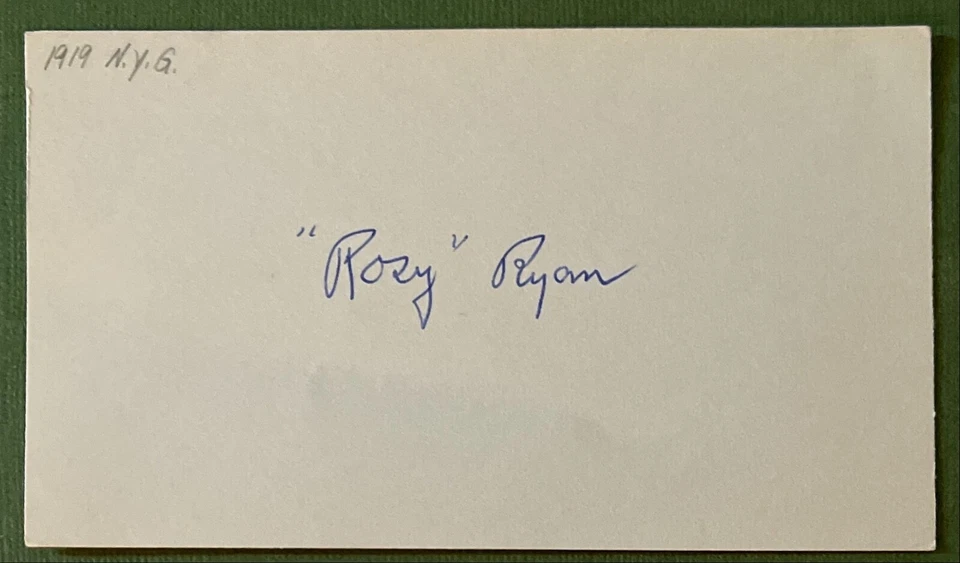 1919 N.Y.G.
"Rosy" Ryan